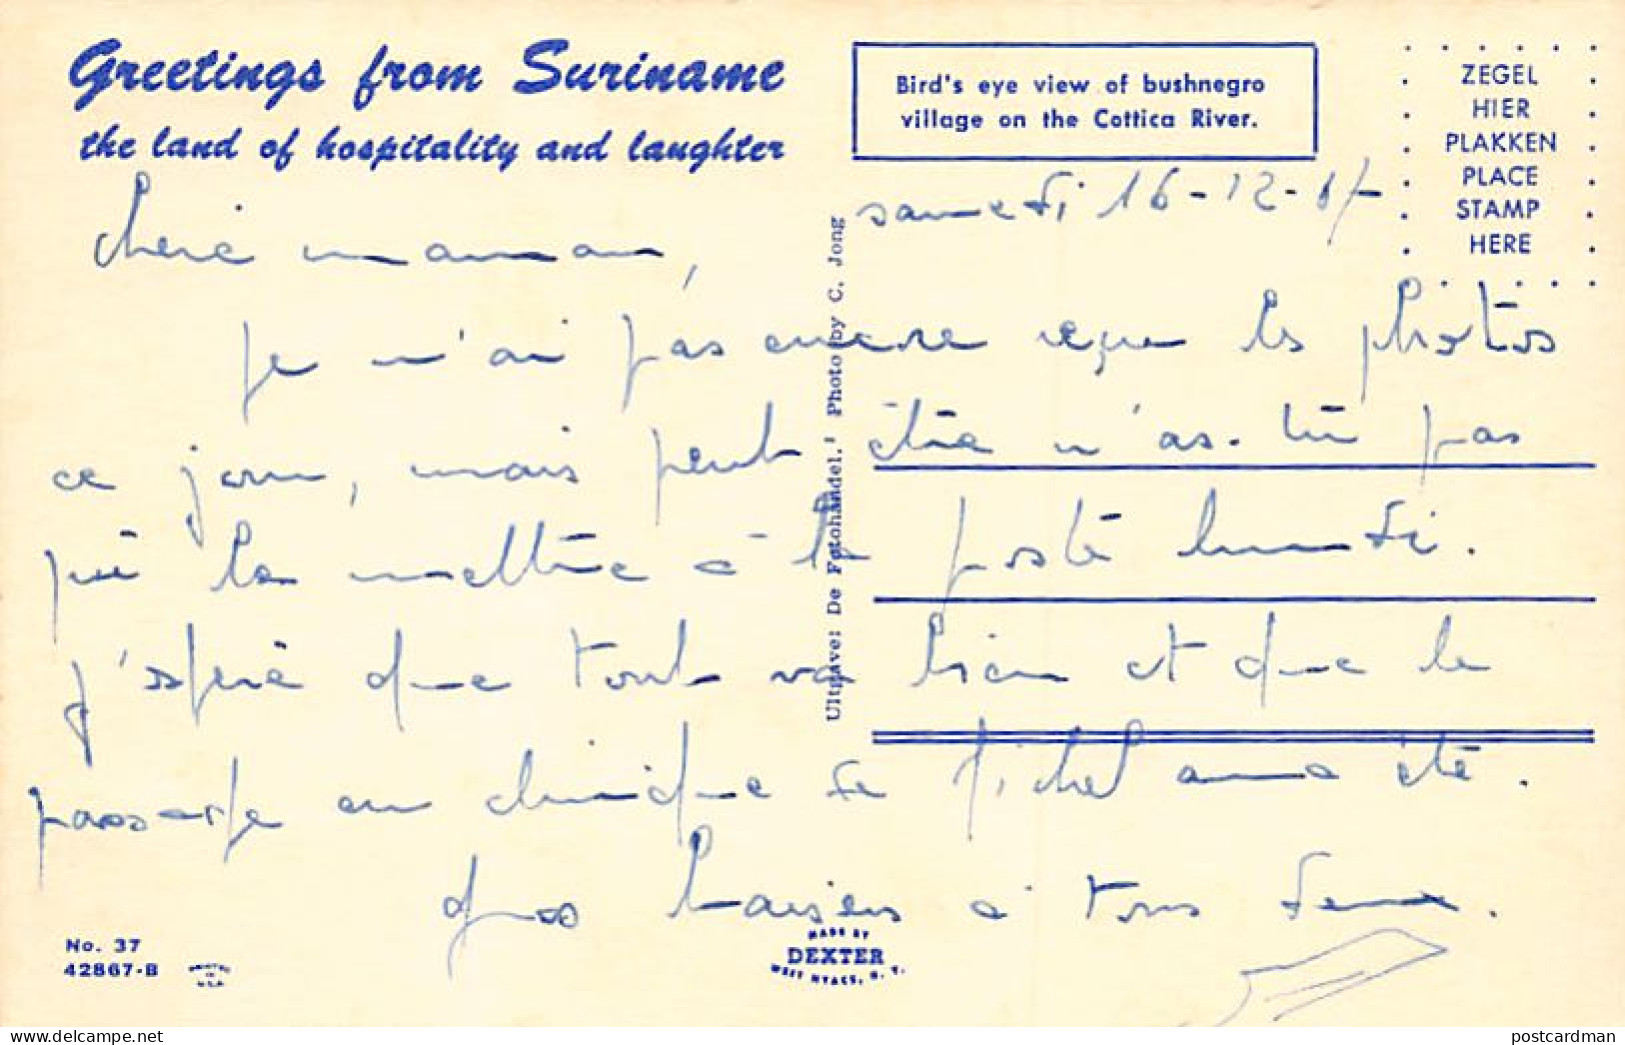 Greetings from Suriname
the land of hospitality and laughter
Bird's eye view of bushnegro
village on the Cottica River.
ZEGEL
HIER
PLAKKEN
PLACE
STAMP
HERE
samedi 16-12-67
Chère maman,
Je n'ai pas encore reçu les photos
ce jour, mais peut être n'as-tu pas
pu les mettre à la poste lundi.
J'espère que tout va bien et que le
passage en clinique de Michel aura été.
Gros baisers à tous deux.
Uitgave: De Fotohandel. Photo by C. Jong
No. 37
42867-B
PRINTED
IN
U.S.A.
MADE BY
DEXTER
WEST NYACK, N. Y.
delcampe.net
postcardman